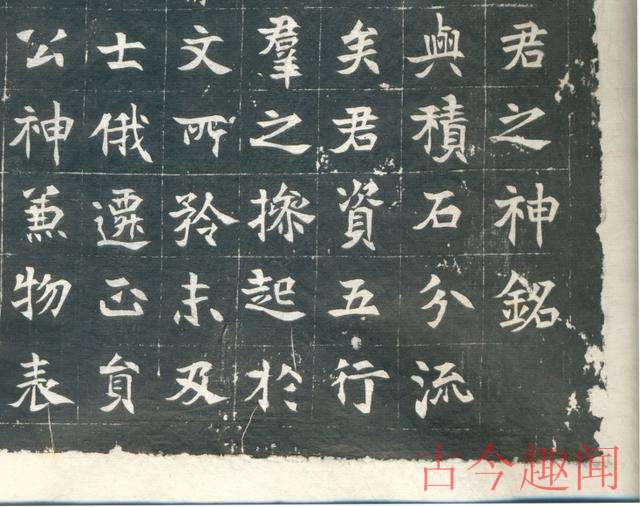 君之神銘
與積石分流
矣君資五行
羣之操起於
文所矜未及
士俄遷正員
公神兼物表
古今趣闻